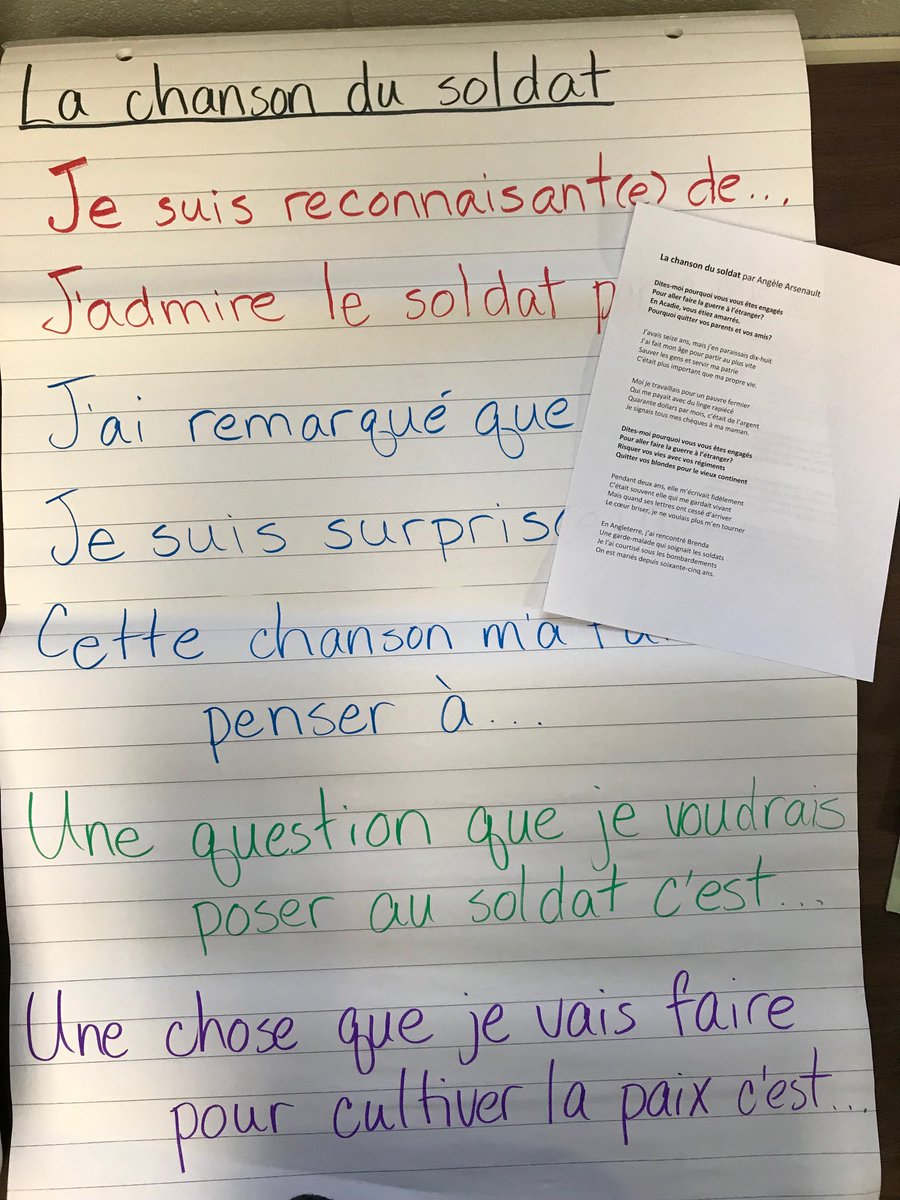 La chanson du soldat
Je suis reconnaisant(e) de...
J'admire le soldat
J'ai remarqué que
Je suis surpris
Cette chanson m'a
penser à...
Une question que je voudrais
poser au soldat c'est...
Une chose que je vais faire
pour cultiver la paix c'est...
La chanson du soldat par Angèle Arsenault
Dites-moi pourquoi vous vous êtes engagés
Pour aller faire la guerre à l'étranger?
En Acadie, vous étiez amarrés.
Pourquoi quitter vos parents et vos amis?
J'avais seize ans, mais j'en paraissais dix-huit
J'ai fait mon âge pour partir au plus vite
Sauver les gens et servir ma patrie
C'était plus important que ma propre vie.
Moi je travaillais pour un pauvre fermier
Qui me payait avec du linge rapiécé
Quarante dollars par mois, c'était de l'argent
Je signais tous mes chèques à ma maman.
Dites-moi pourquoi vous vous êtes engagés
Pour aller faire la guerre à l'étranger?
Risquer vos vies avec vos régiments
Quitter vos blondes pour le vieux continent
Pendant deux ans, elle m'écrivait fidèlement
C'était souvent elle qui me gardait vivant
Mais quand ses lettres ont cessé d'arriver
Le cœur briser, je ne voulais plus m'en tourner
En Angleterre, j'ai rencontré Brenda
Une garde-malade qui soignait les soldats
Je l'ai courtisé sous les bombardements
On est mariés depuis soixante-cinq ans.